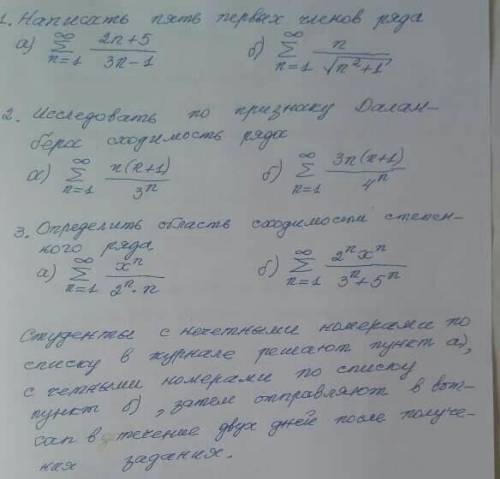 1. Написать пять первых членов ряда
а) ∞∑n=1 (2n+5)/(3n-1) б) ∞∑n=1 n/√(n²+1)
2. Исследовать по признаку Далам-
бера сходимость ряда
а) ∞∑n=1 n(n+1)/3ⁿ б) ∞∑n=1 3n(n+1)/4ⁿ
3. Определить область сходимости степен-
ного ряда
а) ∞∑n=1 xⁿ/(2ⁿ·n) б) ∞∑n=1 2ⁿxⁿ/(3ⁿ+5ⁿ)
Студенты с нечетными номерами по
списку в журнале решают пункт а),
с четными номерами по списку
пункт б), затем отправляют в вот-
сап в течение двух дней после получе-
ния задания.